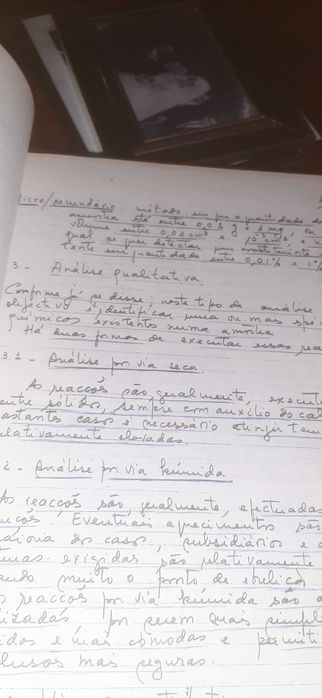 micro/secundário: método em que a quantidade de
amostra está entre 0,01 g e 1 mg, ou
volume entre 0,02 cm³ e 10⁻³ cm³, e n
qual se quer detectar um constituinte
tente em quantidade entre 0,01% e 1%
3 - Análise qualitativa
Conforme já se disse, neste tipo de análise,
objectivo é identificar uma ou mais
químicos existentes numa amostra
Há duas formas de executar essas rea
3.1 - Análise por via seca
As reacções são, geralmente, execut
entre sólidos, sempre com auxílio do cal
astantes casos é necessário atingir tem
elativamente elevadas.
2 - Análise por via húmida
As reacções são, geralmente, efectuadas
uções. Eventuais aquecimentos são
aioria dos casos, subsidiários e
turas exigidas são relativamente
endo muito o ponto de ebulição
s reacções por via húmida são
izadas, por serem mais simpl
idas e mais cómodas e permiti
lusões mais seguras.